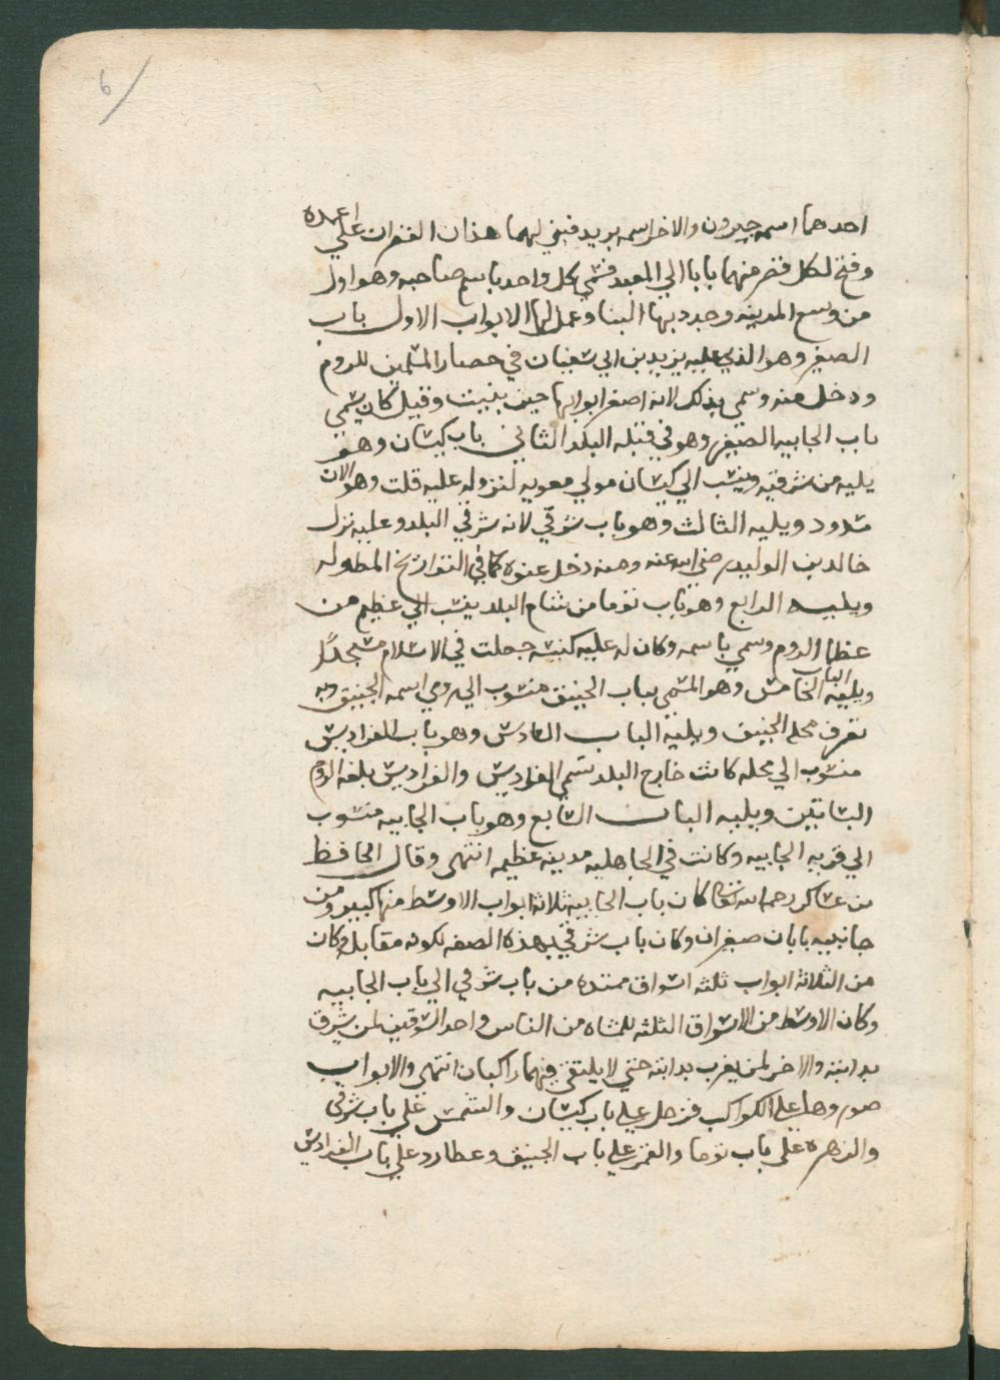 6
احدهما اسمه جيرون والاخر اسمه بريد فبني لهما هذان القصران علي اعمده
وفتح لكل قصر منهما بابا الي المعبد فسمي كل واحد باسم صاحبه وهو اول
من وسع المدينه وجدد بها البنا وعمل لها الابواب الاول باب
الصغير وهو الذي عليه يزيد بن ابي سفيان في حصار المسلمين للروم
ودخل منه وسمي بذلك لانه اصغر ابوابها حين بنيت وقيل كان يسمي
باب الجابيه الصغير وهو في قبله البلد الثاني باب كيسان وهو
يليه من شرقيه وينسب الي كيسان مولي معويه لنزوله عليه قلت وهو الان
مسدود ويليه الثالث وهو باب شرقي لانه شرقي البلد وعليه نزل
خالد بن الوليد رضي الله عنه ومنه دخل عنوة كما في التواريخ المطوله
ويليه الرابع وهو باب توما من شام البلد ينسب الي عظيم من
عظما الروم وسمي باسمه وكان له عليه كنيسه جعلت في الاسلام مسجدًا
ويليه الباب الخامس وهو المسمي بباب الجنيق منسوب الي رومي اسمه الجنيق وبه
تعرف محله الجنيق ويليه الباب السادس وهو باب الفراديس
منسوب الي محله كانت خارج البلد تسمي الفراديس والفراديس بلغه الروم
البساتين ويليه الباب السابع وهو باب الجابيه منسوب
الي قريه الجابيه وكانت في الجاهليه مدينه عظيمه انتهي وقال الحافظ
بن عساكر رحمه الله تعالي كان باب الجابيه ثلاثه ابواب الاوسط منها كبير ومن
جانبيه بابان صغيران وكان باب شرقي بهذه الصفه لكونه مقابله وكان
من الثلاثه ابواب ثلثه اسواق ممتده من باب شرقي الي باب الجابيه
وكان الاوسط من الاسواق الثلثه للمشاه من الناس واحد السوقين لمن يشرق
بدابته والاخر لمن يغرب بدابته حتي لا يلتقي فيهما راكبان انتهي والابواب
صور وها علي الكواكب فزحل علي باب كيسان والشمس علي باب شرقي
والزهره علي باب توما والقمر علي باب الجنيق وعطارد علي باب الفراديس